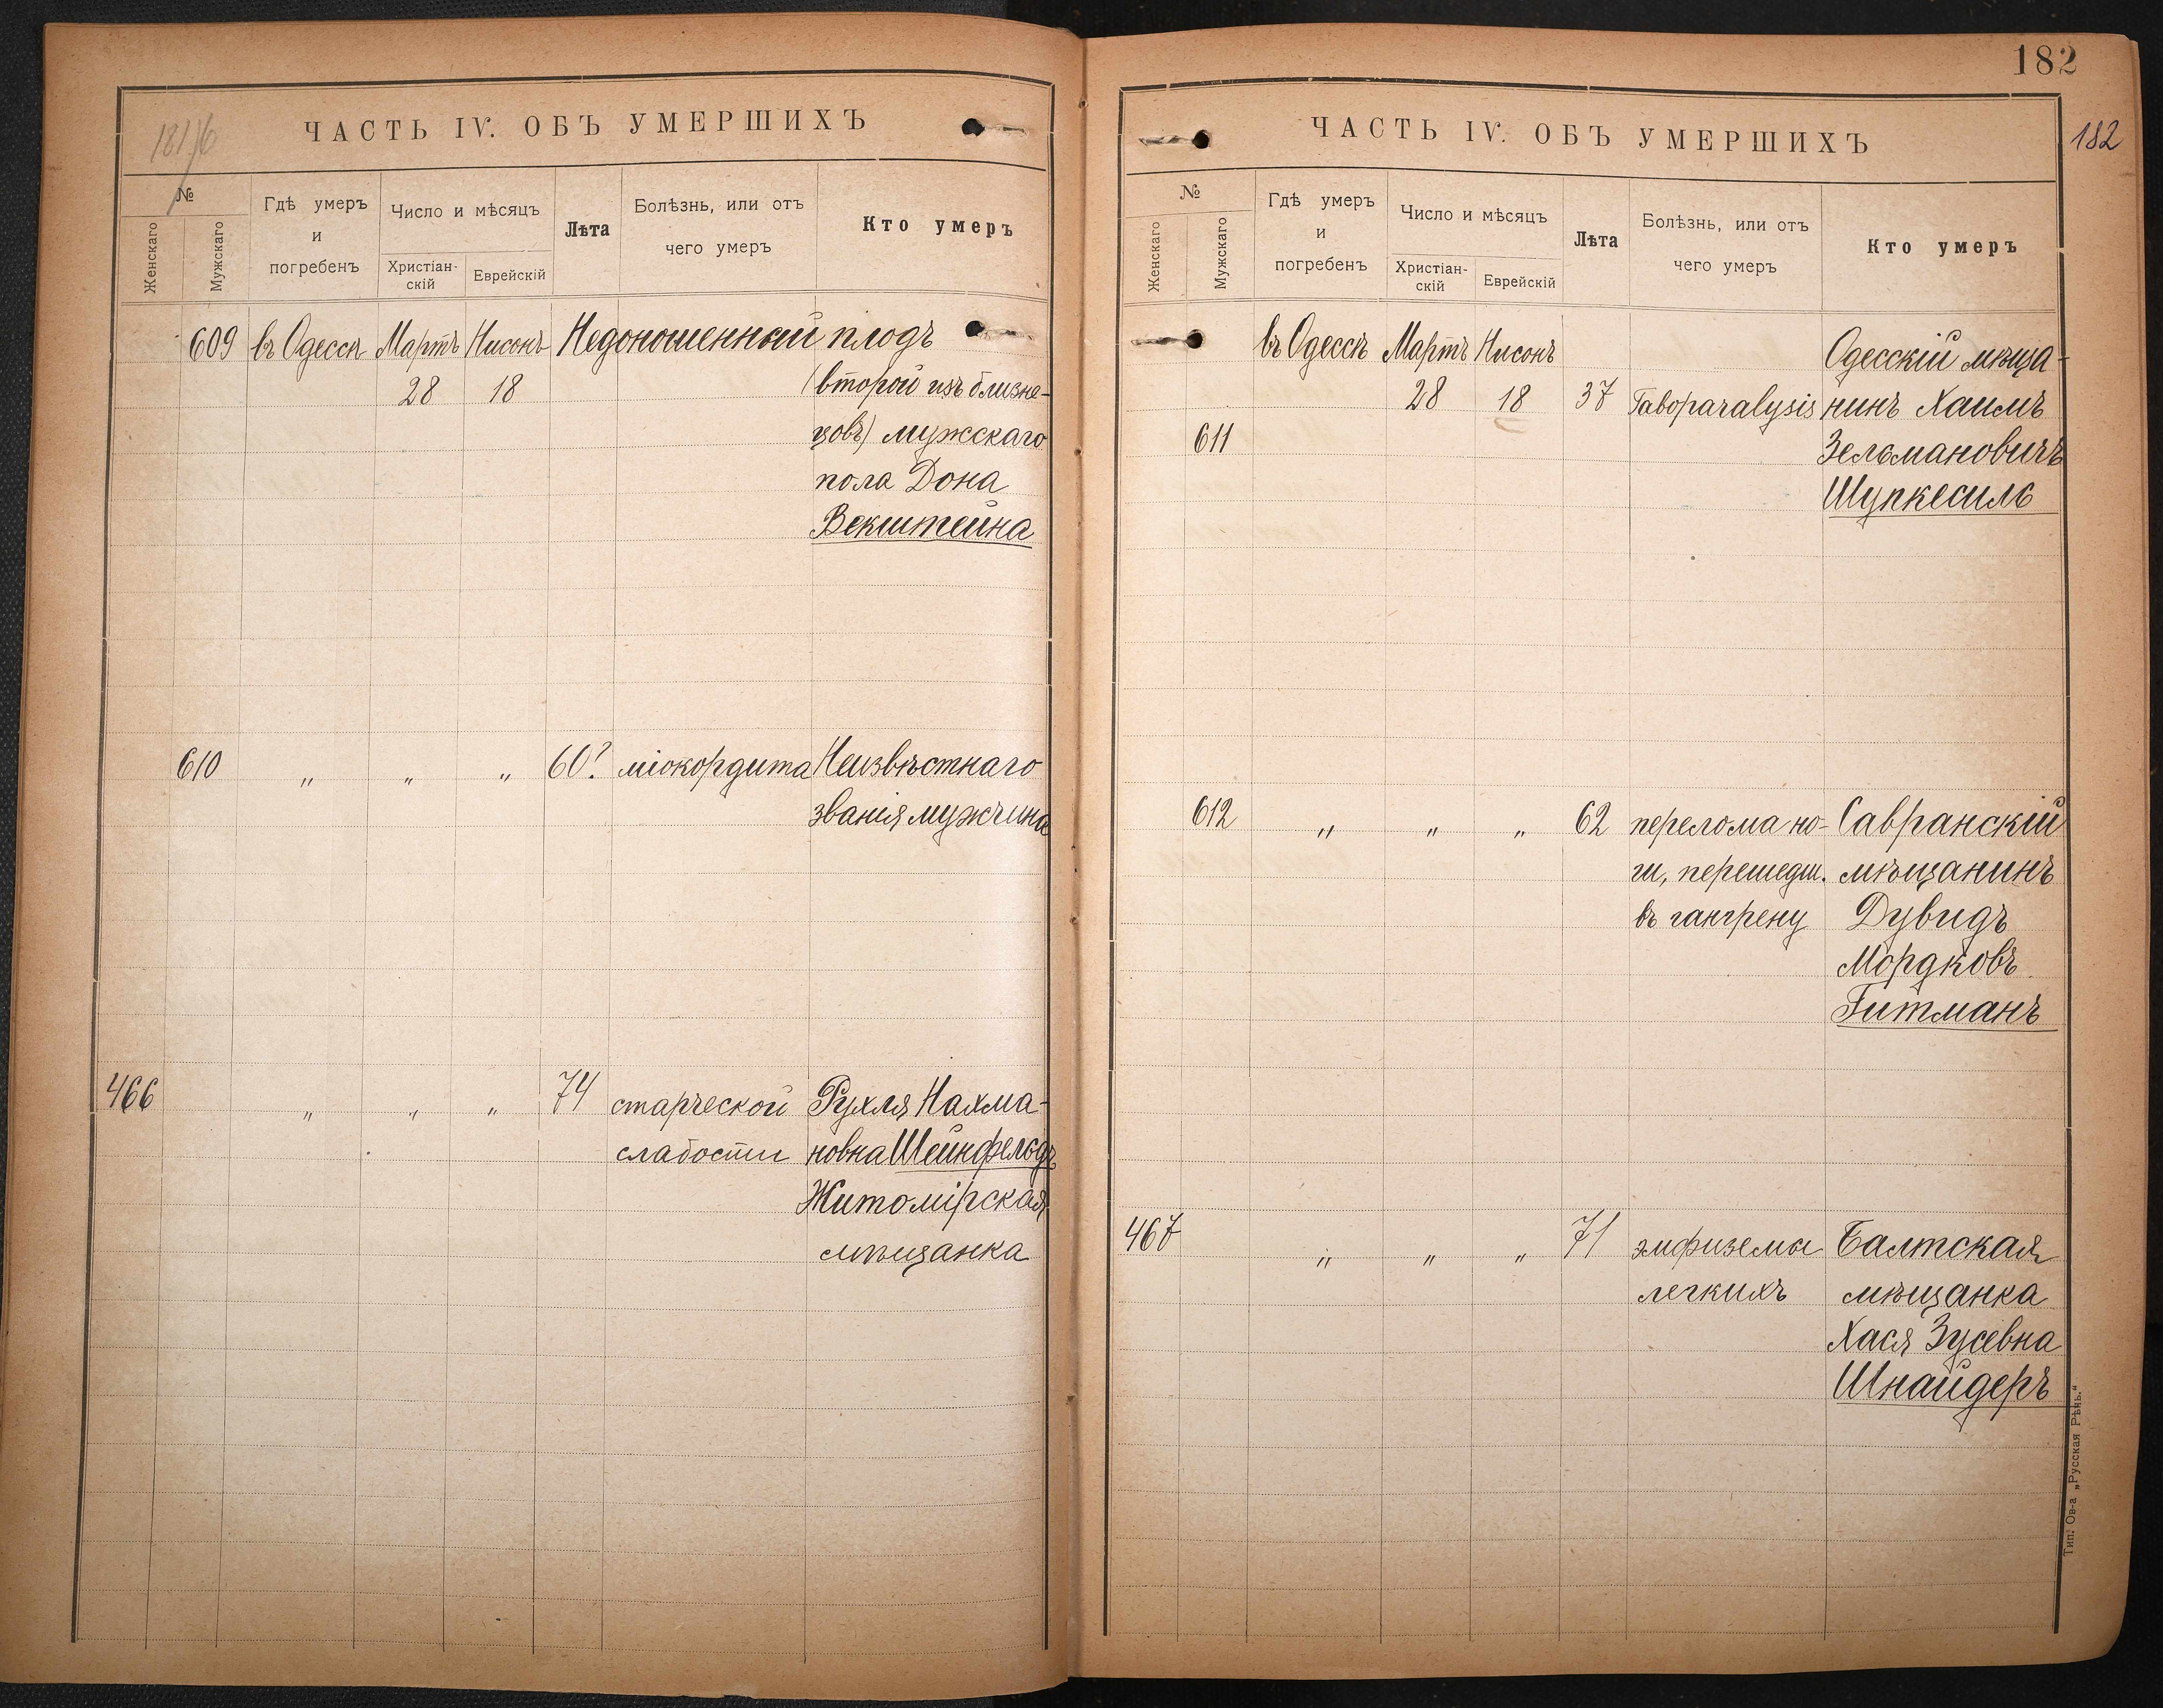 ЧАСТЬ IV. ОБЪ УМЕРШИХЪ
№
Женскаго
Мужскаго
Гдѣ умеръ
и
погребенъ
Число и мѣсяцъ
Христіан-
скій
Еврейскій
Лѣта
Болѣзнь, или отъ
чего умеръ
Кто умеръ
609 въ Одессѣ Мартъ Нисонъ Недоношенный плодъ
28 18 (второй изъ близне-
цовъ) мужскаго
пола Дона
Векштейна
610 " " " 60? міокордита Неизвѣстнаго
званія мужчина
466 " " " 74 старческой Рухля Нахма-
слабости новна Шейнфельдъ
Житомірская
мѣщанка
182
182
ЧАСТЬ IV. ОБЪ УМЕРШИХЪ
№
Женскаго
Мужскаго
Гдѣ умеръ
и
погребенъ
Число и мѣсяцъ
Христіан-
скій
Еврейскій
Лѣта
Болѣзнь, или отъ
чего умеръ
Кто умеръ
въ Одессѣ Мартъ Нисонъ Одесскій мѣща-
28 18 37 Taboparalysis нинъ Хаимъ
611 Зельмановичъ
Шупкесиль
612 " " " 62 перелома но- Савранскій
ги, перешедш. мѣщанинъ
въ гангрену Дувидъ
Мордковъ
Гитманъ
467 " " " 71 эмфиземы Балтская
легкихъ мѣщанка
Хася Зусевна
Шнайдеръ
Тип. Ов-а „Русская Рѣчь."